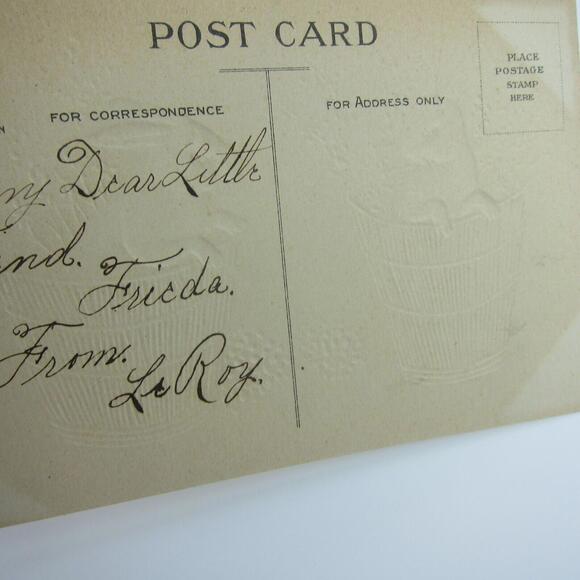 POST CARD
PLACE
POSTAGE
STAMP
HERE
N FOR CORRESPONDENCE
FOR ADDRESS ONLY
my Dear Little
ind.
Frieda.
From.
Le Roy.